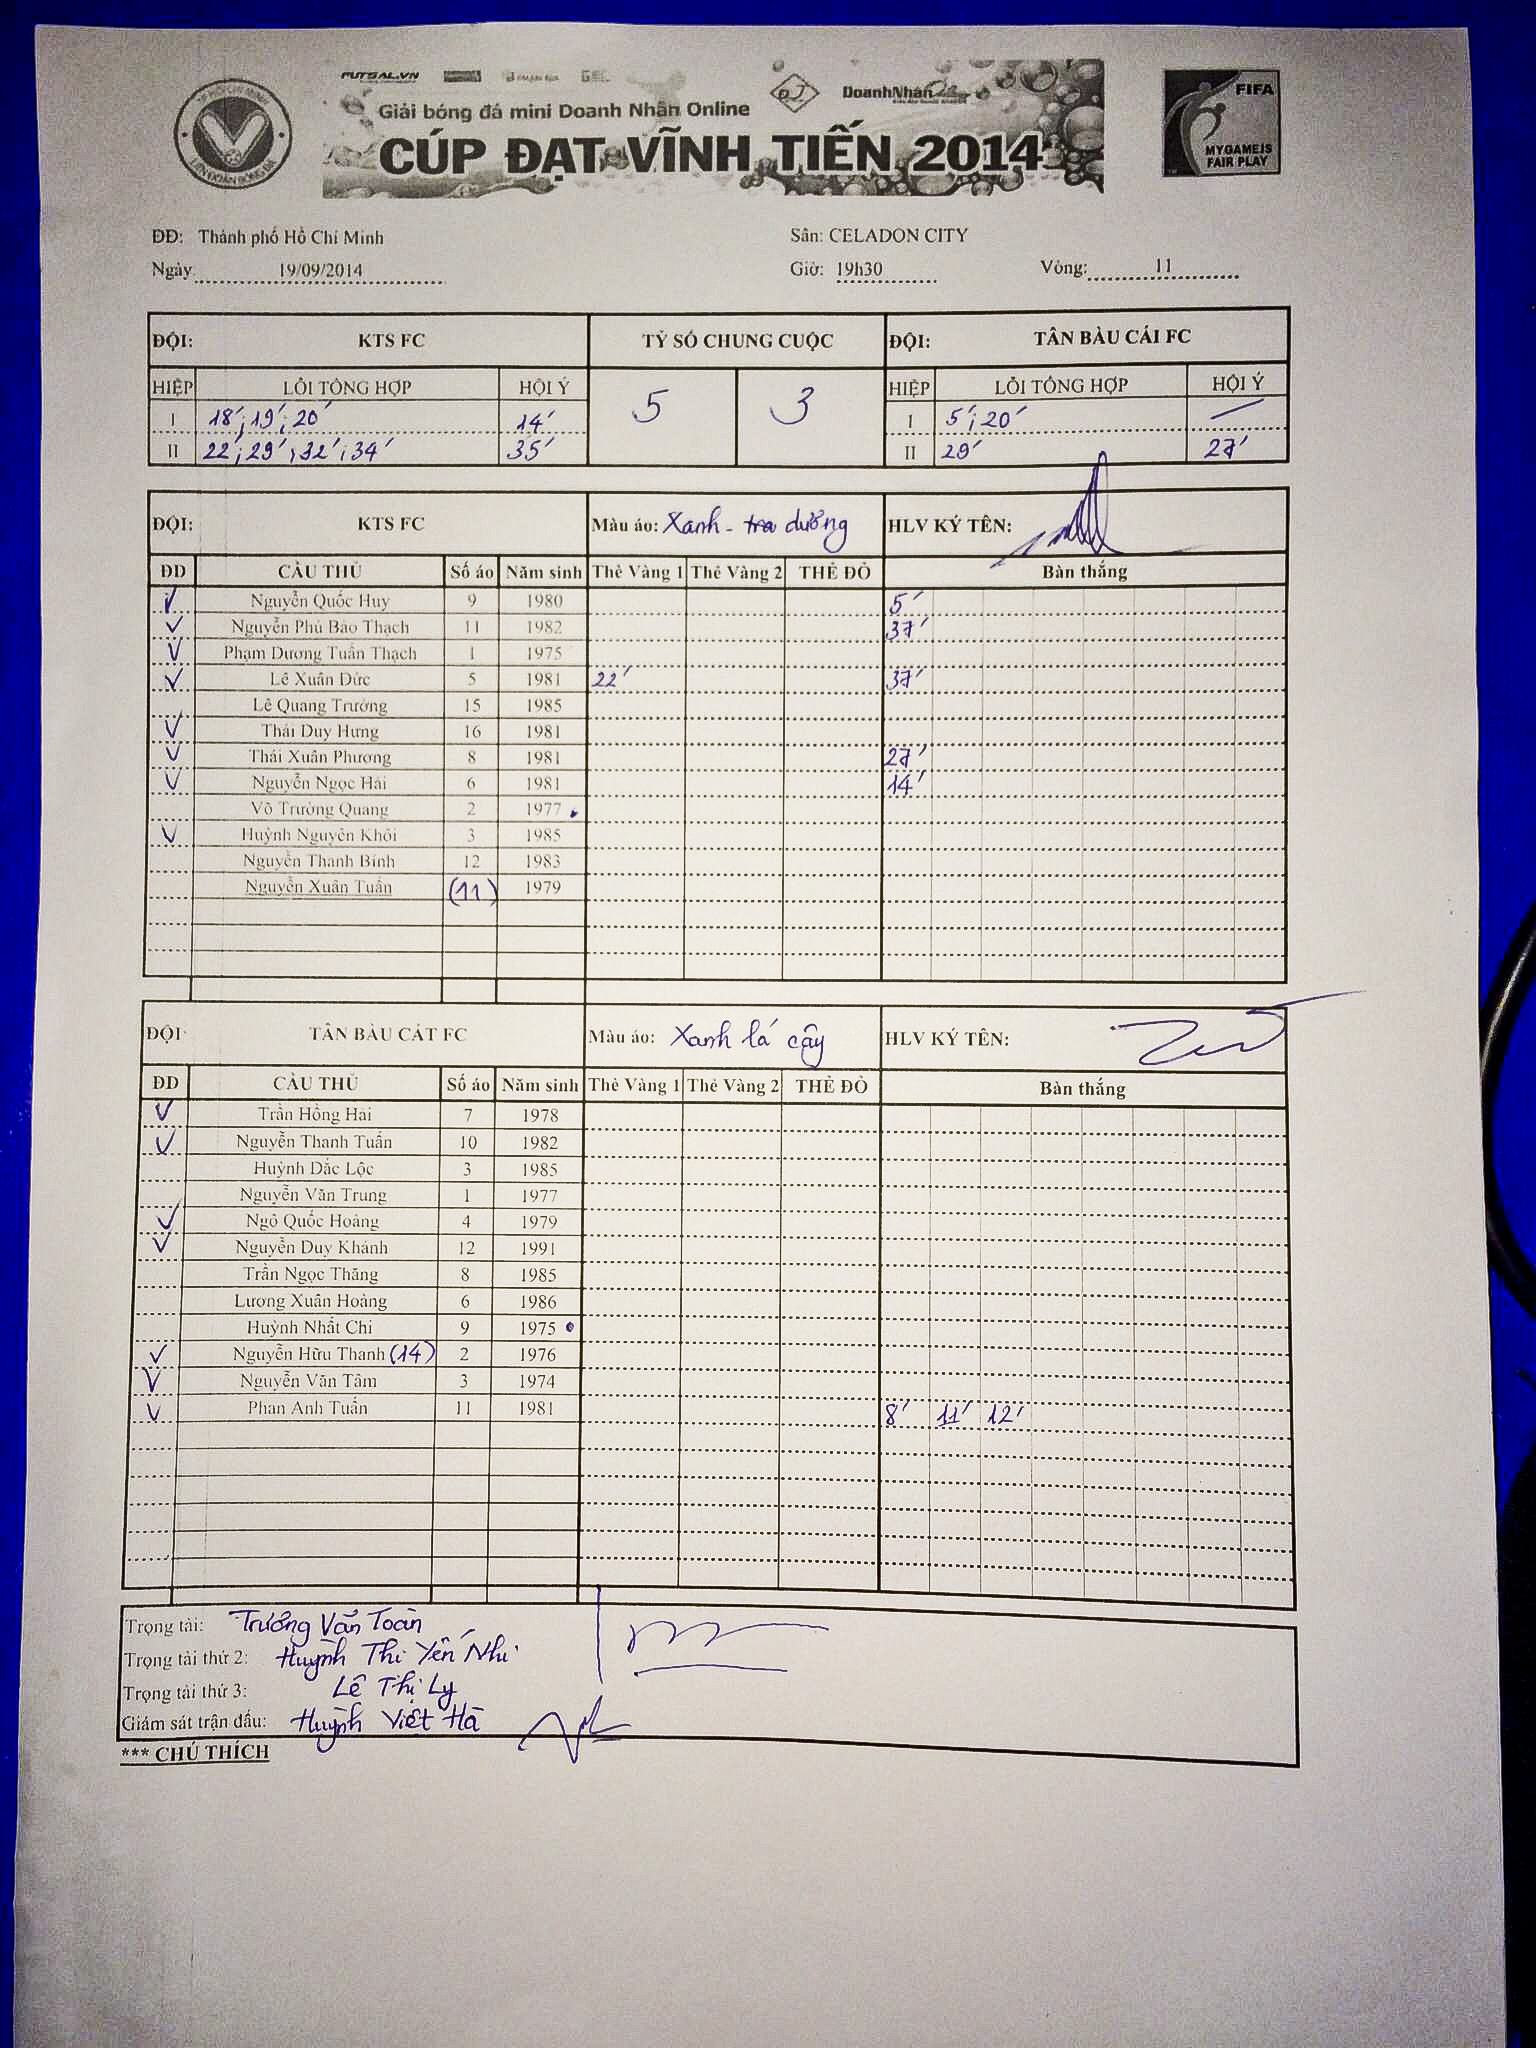 FUTSAL.VN
Giải bóng đá mini Doanh Nhân Online DoanhNhân
CÚP ĐẠT VĨNH TIẾN 2014
TP HỒ CHÍ MINH
LIÊN ĐOÀN BÓNG ĐÁ
FIFA
MY GAME IS
FAIR PLAY
ĐĐ: Thành phố Hồ Chí Minh Sân: CELADON CITY
Ngày 19/09/2014 Giờ: 19h30 Vòng: 11
ĐỘI: KTS FC TỶ SỐ CHUNG CUỘC ĐỘI: TÂN BÀU CÁI FC
HIỆP LỖI TỔNG HỢP HỘI Ý 5 3 HIỆP LỖI TỔNG HỢP HỘI Ý
I 18' ; 19' ; 20' 14' I 5' ; 20' —
II 22' ; 29' ; 32' ; 34' 35' II 29' 27'
ĐỘI: KTS FC Màu áo: Xanh - tra dương HLV KÝ TÊN:
ĐD CẦU THỦ Số áo Năm sinh Thẻ Vàng 1 Thẻ Vàng 2 THẺ ĐỎ Bàn thắng
V Nguyễn Quốc Huy 9 1980 5'
V Nguyễn Phú Bảo Thạch 11 1982 37'
V Phạm Dương Tuấn Thạch 1 1975
V Lê Xuân Đức 5 1981 22' 37'
Lê Quang Trưởng 15 1985
V Thái Duy Hưng 16 1981
V Thái Xuân Phương 8 1981 27'
V Nguyễn Ngọc Hải 6 1981 14'
Võ Trường Quang 2 1977
V Huỳnh Nguyên Khôi 3 1985
Nguyễn Thanh Bình 12 1983
Nguyễn Xuân Tuấn (11) 1979
ĐỘI TÂN BÀU CÁT FC Màu áo: Xanh lá cây HLV KÝ TÊN:
ĐD CẦU THỦ Số áo Năm sinh Thẻ Vàng 1 Thẻ Vàng 2 THẺ ĐỎ Bàn thắng
V Trần Hồng Hải 7 1978
V Nguyễn Thanh Tuấn 10 1982
Huỳnh Đắc Lộc 3 1985
Nguyễn Văn Trung 1 1977
V Ngô Quốc Hoàng 4 1979
V Nguyễn Duy Khánh 12 1991
Trần Ngọc Thăng 8 1985
Lương Xuân Hoàng 6 1986
Huỳnh Nhất Chi 9 1975
V Nguyễn Hữu Thanh (14) 2 1976
V Nguyễn Văn Tâm 3 1974
V Phan Anh Tuấn 11 1981 8' 11' 12'
Trọng tài: Trương Văn Toàn
Trọng tài thứ 2: Huỳnh Thị Yến Nhi
Trọng tài thứ 3: Lê Thị Ly
Giám sát trận đấu: Huỳnh Việt Hà
*** CHÚ THÍCH